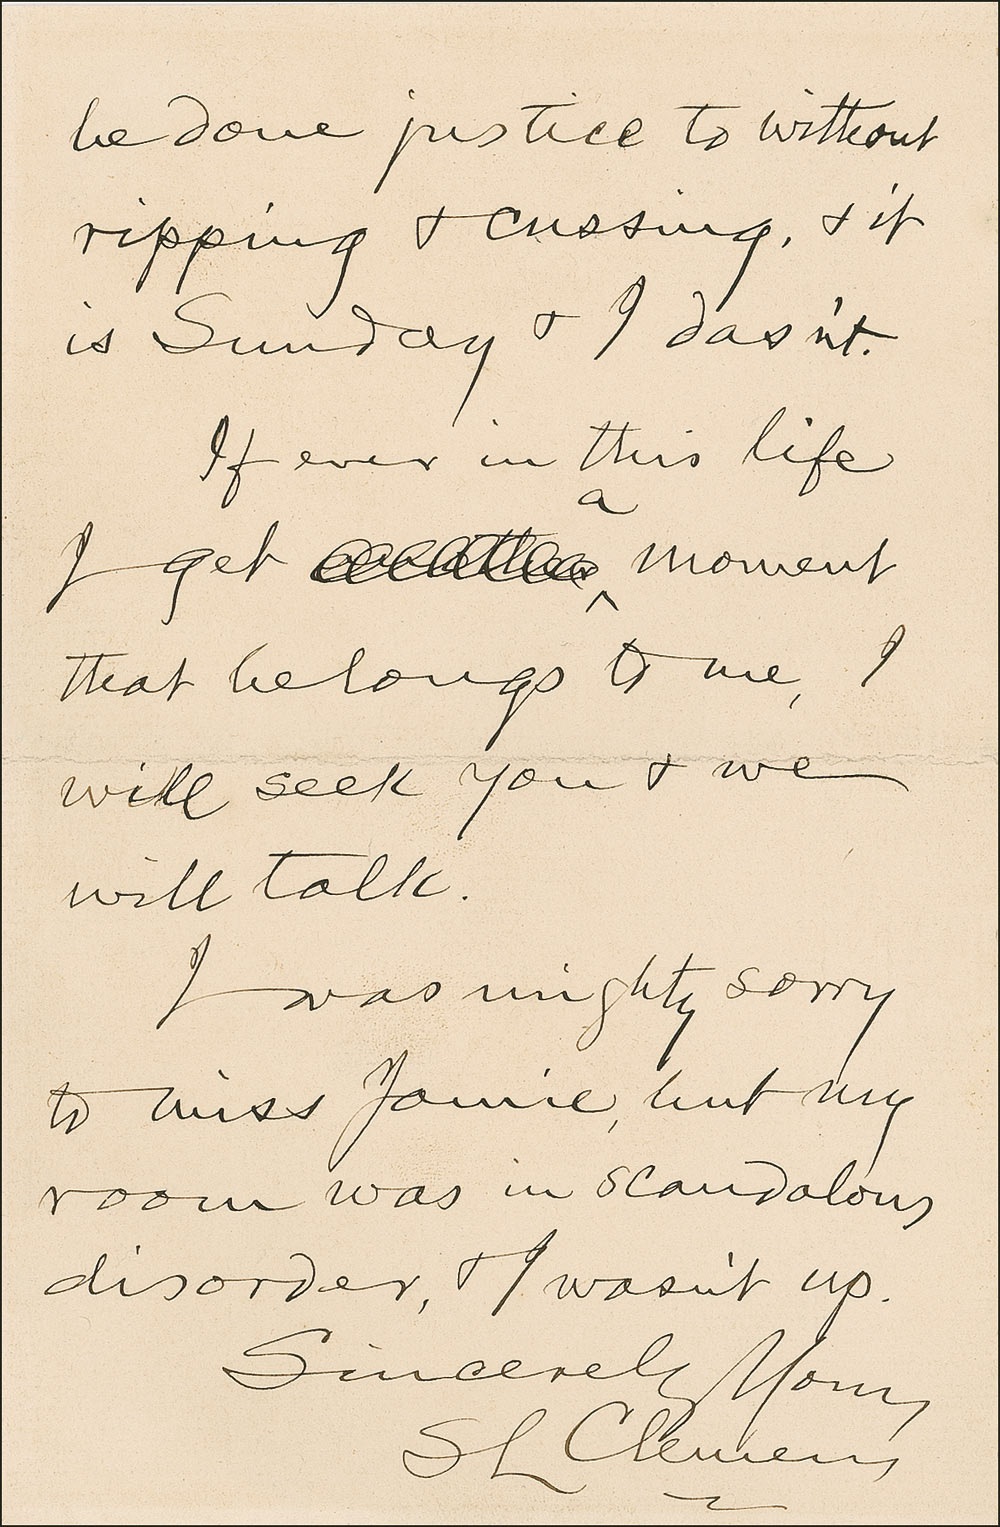 be done justice to without
ripping & cussing, & it
is Sunday & I dasn't.
If ever in this life
a
I get moment
that belongs to me, I
will seek you & we
will talk.
I was mighty sorry
to miss Jamie, but my
room was in scandalous
disorder, & I wasn't up.
Sincerely Yours
SL Clemens